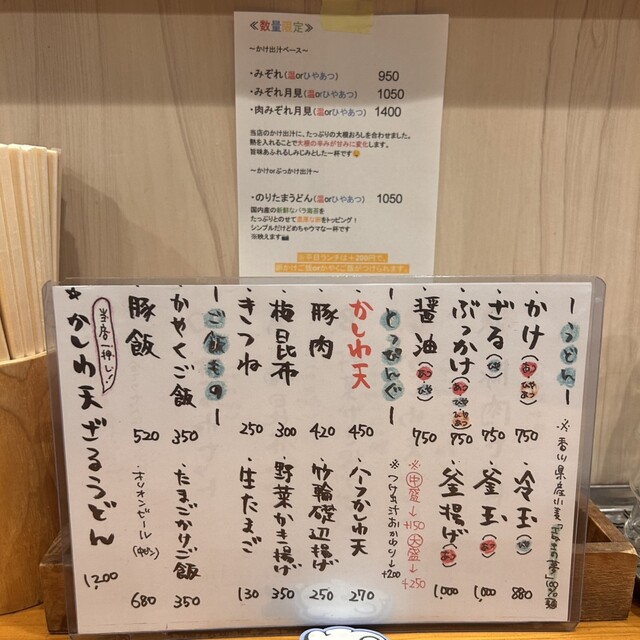 ≪数量限定≫
～かけ出汁ベース～
・みぞれ(温orひやあつ) 950
・みぞれ月見(温orひやあつ) 1050
・肉みぞれ月見(温orひやあつ) 1400
当店のかけ出汁に、たっぷりの大根おろしを合わせました。
熱を入れることで大根の辛みが甘みに変化します。
旨味あふれるしみじみとした一杯です😉
～かけorぶっかけ出汁～
・のりたまうどん(温orひやあつ) 1050
国内産の新鮮なバラ海苔を
たっぷりとのせて濃厚な卵をトッピング!
シンプルだけどめちゃウマな一杯です
※映えます📷
※平日ランチは+200円で
卵かけご飯orかやくご飯がつけられます。
ーうどんー
※香川県産小麦「さぬきの夢」100%麺
かけ(あつ・ひやあつ) 750
ざる(ひや) 750
ぶっかけ(あつ・ひや・ひやあつ) 750
醤油(あつ・ひや) 750
冷玉(ひや) 880
釜玉(あつ) 1,000
釜揚げ(あつ) 1,000
※中盛→+150 大盛→+250
※つけ汁おかわり→+200
ーとっぴんぐー
かしわ天 450
豚肉 420
梅昆布 300
きつね 250
ハーフかしわ天 270
竹輪磯辺揚げ 250
野菜かき揚げ 350
生たまご 130
ーご飯ものー
かやくご飯 350
豚飯 520
たまごかけご飯 350
オリオンビール(中ビン) 680
当店一押し!
★かしわ天ざるうどん 1,200